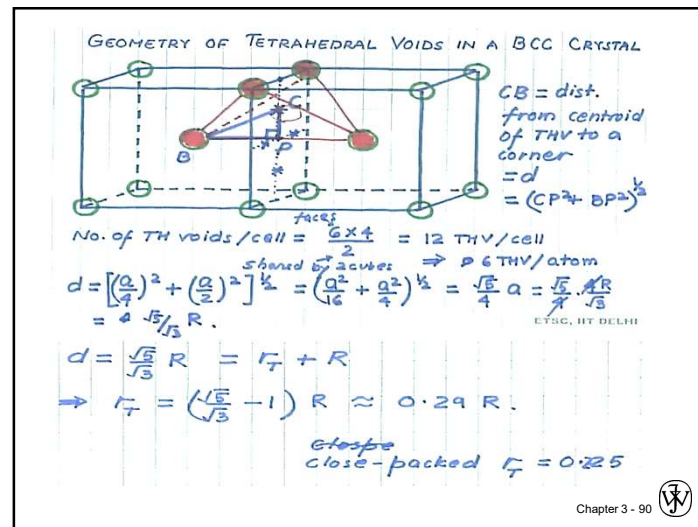 GEOMETRY OF TETRAHEDRAL VOIDS IN A BCC CRYSTAL
C
B
P
CB = dist.
from centroid
of THV to a
corner
= d
= (CP² + BP²)^½
faces
No. of TH voids/cell = 6×4/2 = 12 THV/cell
shared by 2 cubes ⇒ 6 THV/atom
d = [(a/4)² + (a/2)²]^½ = (a²/16 + a²/4)^½ = √5/4 a = √5/4 · 4R/√3
= √5/√3 R.
ETSC, IIT DELHI
d = √5/√3 R = r_T + R
⇒ r_T = (√5/√3 - 1) R ≈ 0.29 R.
close-packed r_T = 0.225
Chapter 3 - 90